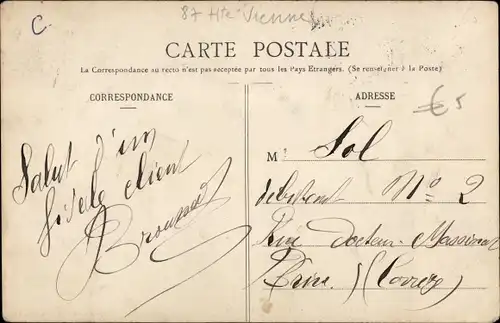 C.
87 Hte Vienne
CARTE POSTALE
La Correspondance au recto n'est pas acceptée par tous les Pays Etrangers. (Se renseigner à la Poste)
CORRESPONDANCE
ADRESSE
€5
Salut d'un
fidele client
Mr Sol
debitant No 2
Rue Docteur Massenat
Brive (Correze